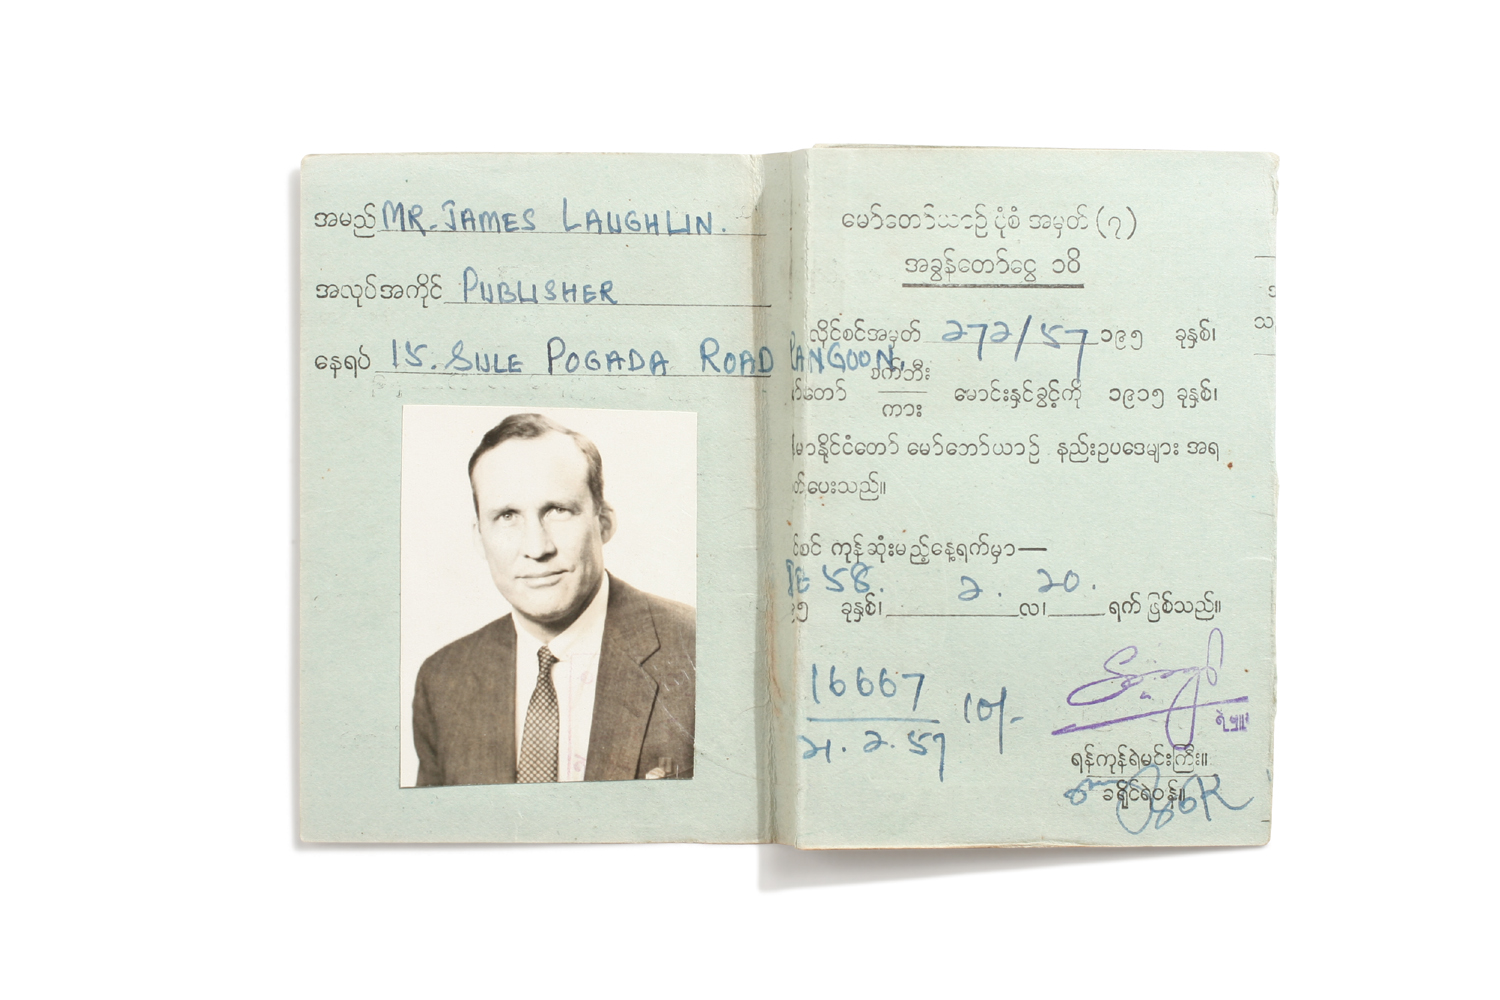 အမည် MR. JAMES LAUGHLIN.
အလုပ်အကိုင် PUBLISHER
နေရပ် 15. SULE POGADA ROAD RANGOON.
မော်တော်ယာဉ် ပုံစံ အမှတ် (၇)
အခွန်တော်ငွေ ၁၀ိ
လိုင်စင်အမှတ် 272/57 ၁၉၅ ခုနှစ်၊
စက်ဘီး
တော် မောင်းနှင်ခွင့်ကို ၁၉၁၅ ခုနှစ်၊
ကား
နိုင်ငံတော် မော်တော်ယာဉ် နည်းဥပဒေများ အရ
ပေးသည်။
စင် ကုန်ဆုံးမည့်နေ့ရက်မှာ—
58. 2. 20.
၅ ခုနှစ်၊ လ၊ ရက် ဖြစ်သည်။
16667 10/-
21. 2. 57
ရန်ကုန်ရဲမင်းကြီး။
ခရိုင်ရဲဝန်။